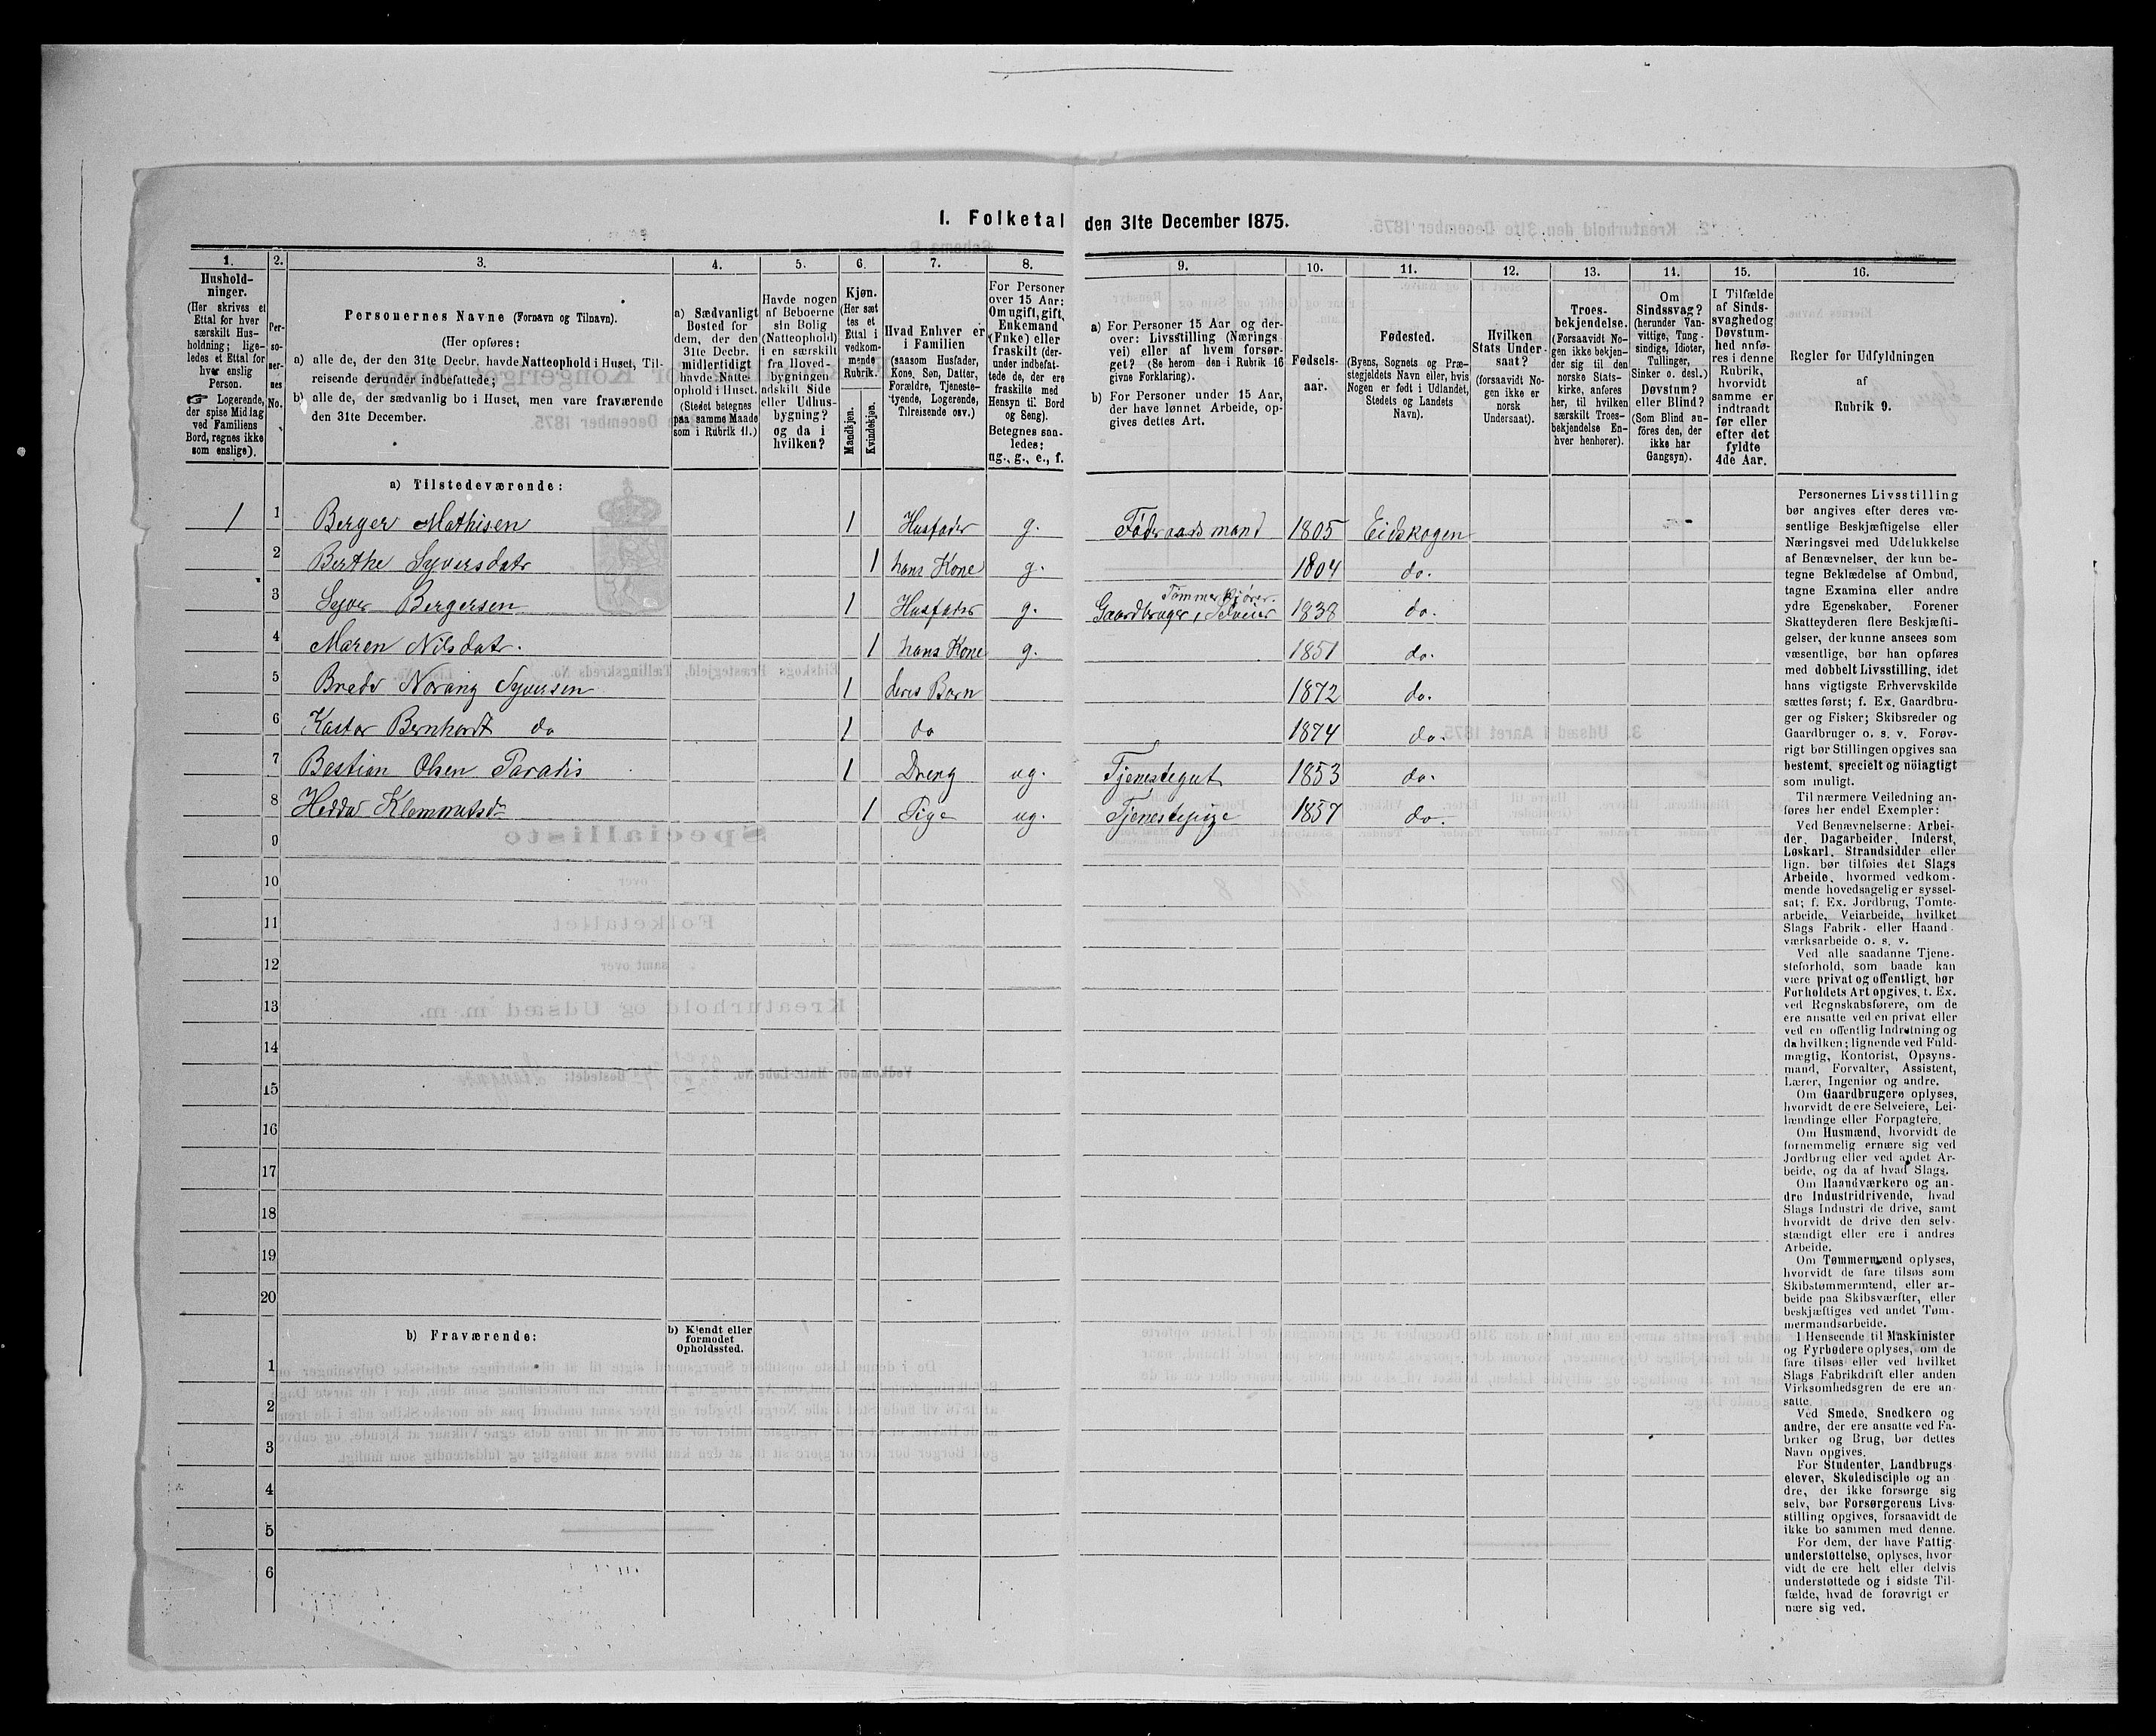 I. Folketal den 31te December 1875.
1.
Hushold-
ninger.
(Her skrives et
Ettal for hver
særskilt Hus-
holdning; lige-
ledes et Ettal for
hver enslig
Person.
☞ Logerende,
der spise Middag
ved Familiens
Bord, regnes ikke
som enslige).
2.
Per-
so-
ner-
nes
No.
3.
Personernes Navne (Fornavn og Tilnavn).
(Her opføres:
a) alle de, der den 31te Decbr. havde Natteophold i Huset, Til-
reisende derunder indbefattede;
b) alle de, der sædvanlig bo i Huset, men vare fraværende
den 31te December.
4.
a) Sædvanligt
Bosted for
dem, der den
31te Decbr.
midlertidigt
havde Natte-
ophold i Huset.
(Stedet betegnes
paa samme Maade
som i Rubrik 11.)
5.
Havde nogen
af Beboerne
sin Bolig
(Natteophold)
i en særskilt
fra Hoved-
bygningen
adskilt Side
eller Udhus-
bygning?
og da i
hvilken?
6.
Kjøn.
(Her sæt
tes et
Ettal i
vedkom-
mende
Rubrik.
Mandkjøn.
Kvindekjøn.
7.
Hvad Enhver er
i Familien
(saasom Husfader,
Kone, Søn, Datter,
Forældre, Tjeneste-
tyende, Logerende,
Tilreisende osv.)
8.
For Personer
over 15 Aar:
Om ugift, gift,
Enkemand
(Enke) eller
fraskilt (der-
under indbefat-
tede de, der ere
fraskilte med
Hensyn til Bord
og Seng).
Betegnes saa-
ledes:
ug., g., e., f.
9.
a) For Personer 15 Aar og der-
over: Livsstilling (Nærings
vei) eller af hvem forsør-
get? (Se herom den i Rubrik 16
givne Forklaring).
b) For Personer under 15 Aar,
der have lønnet Arbeide, op-
gives dettes Art.
10.
Fødsels-
aar.
11.
Fødested.
(Byens, Sognets og Præ-
stegjeldets Navn eller, hvis
Nogen er født i Udlandet,
Stedets og Landets
Navn).
12.
Hvilken
Stats Under-
saat?
(forsaavidt No-
gen ikke er
norsk
Undersaat).
13.
Troes-
bekjendelse.
(Forsaavidt No-
gen ikke bekjen-
der sig til den
norske Stats-
kirke, anføres
her, til hvilken
særskilt Troes-
bekjendelse En-
hver henhører).
14.
Om
Sindssvag?
(herunder Van-
vittige, Tung-
sindige, Idioter,
Tullinger,
Sinker o. desl.)
Døvstum?
eller Blind?
(Som Blind an-
føres den, der
ikke har
Gangsyn).
15.
I Tilfælde
af Sinds-
svaghed og
Døvstum-
hed anfø-
res i denne
Rubrik,
hvorvidt
samme er
indtraadt
før eller
efter det
fyldte
4de Aar.
16.
Regler for Udfyldningen
af
Rubrik 9.
a) Tilstedeværende:
1 1 Berger Mathisen 1 Husfader g. Föderaadsmand 1805 Eidskogen
2 Berthe Syversdatr 1 hans Kone g. 1804 do.
3 Syver Bergersen 1 Husfader g. Gaardbruger, Selveier Tömmerkjörer. 1838 do.
4 Maren Nilsdatr. 1 hans Kone g. 1851 do.
5 Brede Syversen 1 deres Barn 1872 do.
6 Kastor Bernhardt do 1 do 1874 do.
7 Bastian Olsen Paradis 1 Dreng ug. Tjenestegut 1853 do.
8 Hedda 1 Pige ug. Tjenestepige 1857 do.
9
10
11
12
13
14
15
16
17
18
19
20
b) Fraværende:
b) Kjendt eller
formodet
Opholdssted.
1
2
3
4
5
6
Personernes Livsstilling
bør angives efter deres væ-
sentlige Beskjæftigelse eller
Næringsvei med Udelukkelse
af Benævnelser, der kun be-
tegne Beklædelse af Ombud,
tagne Examina eller andre
ydre Egenskaber. Forener
Skatteyderen flere Beskjæfti-
gelser, der kunne ansees som
væsentlige, bør han opføres
med dobbelt Livsstilling, idet
hans vigtigste Erhvervskilde
sættes først; f. Ex. Gaardbru-
ger og Fisker; Skibsreder og
Gaardbruger o. s. v. Forøv-
rigt bør Stillingen opgives saa
bestemt, specielt og nöiagtigt
som muligt.
Til nærmere Veiledning an-
føres her endel Exempler:
Ved Benævnelserne: Arbei-
der, Dagarbeider, Inderst,
Løskarl, Strandsidder eller
lign. bør tilføies det Slags
Arbeide, hvormed vedkom-
mende hovedsagelig er syssel-
sat; f. Ex. Jordbrug, Tomte-
arbeide, Veiarbeide, hvilket
Slags Fabrik- eller Haand-
værksarbeide o. s. v.
Ved alle saadanne Tjene-
steforhold, som baade kan
være privat og offentligt, bør
Forholdets Art opgives, t. Ex.
ved Regnskabsførere, om de
ere ansatte ved en privat eller
ved en offentlig Indretning og
da hvilken; lignende ved Fuld-
mægtig, Kontorist, Opsyns-
mand, Forvalter, Assistent,
Lærer, Ingeniør og andre.
Om Gaardbrugere oplyses,
hvorvidt de ere Selveiere, Lei-
lændinge eller Forpagtere.
Om Husmænd, hvorvidt de
fornemmelig ernære sig ved
Jordbrug eller ved andet Ar-
beide, og da af hvad Slags.
Om Haandværkere og an-
dre Industridrivende, hvad
Slags Industri de drive, samt
hvorvidt de drive den selv-
stændigt eller ere i andres
Arbeide.
Om Tømmermænd oplyses,
hvorvidt de fare tilsøs som
Skibstømmermænd, eller ar-
beide paa Skibsværfter, eller
beskjæftiges ved andet Tøm-
mermandsarbeide.
I Henseende til Maskinister
og Fyrbødere oplyses, om de
fare tilsøs eller ved hvilket
Slags Fabrikdrift eller anden
Virksomhedsgren de ere an-
satte.
Ved Smede, Snedkere og
andre, der ere ansatte ved Fa-
briker og Brug, bør dettes
Navn opgives.
For Studenter, Landbrugs-
elever, Skoledisciple og an-
dre, der ikke forsørge sig
selv, bør Forsørgerens Livs-
stilling opgives, forsaavidt de
ikke bo sammen med denne.
For dem, der have Fattig-
understøttelse, oplyses, hvor-
vidt de ere helt eller delvis
understøttede og i sidste Til-
fælde, hvad de forøvrigt er-
nære sig ved.